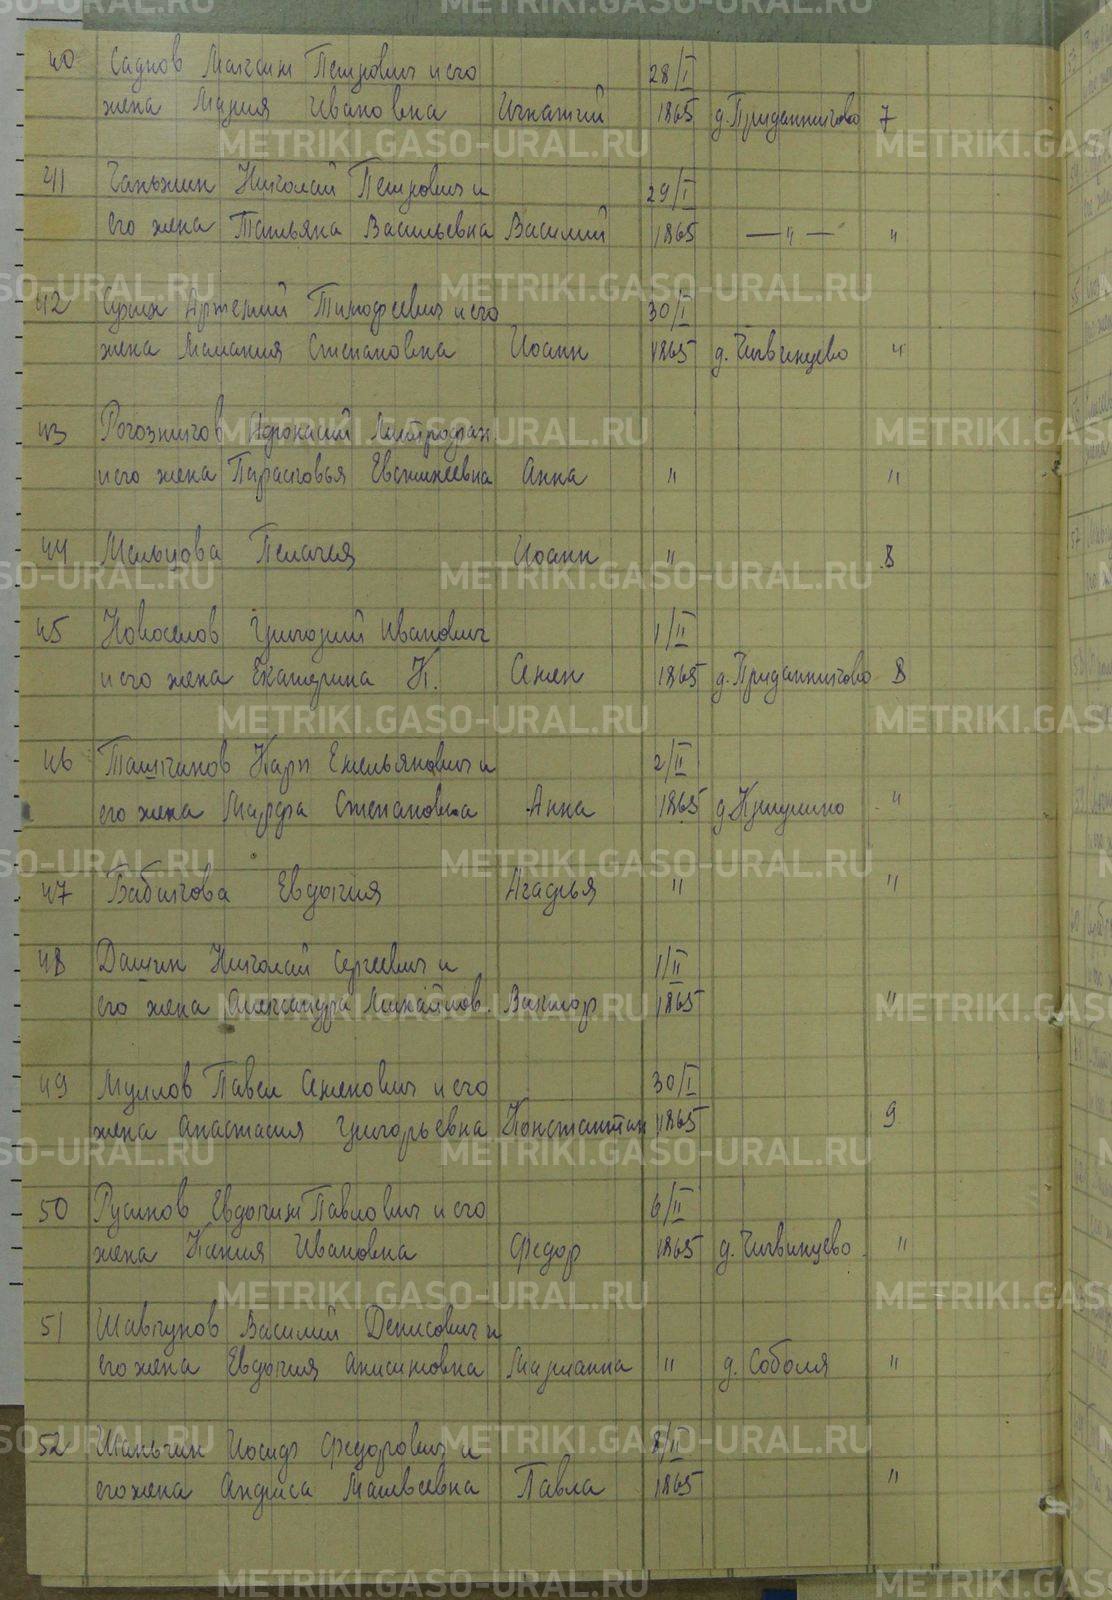 METRIKI.GASO-URAL.RU
40 Саднов Максим Петрович и его 28/I
жена Мария Ивановна Игнатий 1865 д. Приданниково 7
41 Ганькин Николай Петрович и 29/I
его жена Татьяна Васильевна Василий 1865 —〃— 〃
42 Сухих Артемий Тимофеевич и его 30/I
жена Мелания Степановна Иоанн 1865 д. Чигвинцево 〃
43 Рогозников Афонасий Митрофан.
и его жена Парасковья Евстихеевна Анна 〃 〃
44 Мальцова Пелагея Иоанн 〃 8
45 Новоселов Григорий Иванович 1/II
и его жена Екатерина К. Семен 1865 д. Приданниково 8
46 Ташкинов Карп Емельянович и 2/II
его жена Марфа Степановна Анна 1865 д. Криулино 〃
47 Бабикова Евдокия Агафья 〃 〃
48 Дашин Николай Сергеевич и 1/II
его жена Александра Михайлов. Виктор 1865 〃
49 Муллов Павел Семенович и его 30/I
жена Анастасия Григорьевна Константин 1865 9
50 Русинов Евдоким Павлович и его 6/II
жена Ксения Ивановна Федор 1865 д. Чигвинцево 〃
51 Шавкунов Василий Денисович и
его жена Евдокия Анисимовна Марианна 〃 д. Соболя 〃
52 Шанькин Иосиф Федорович и 8/II
его жена Матвеевна Павла 1865 〃